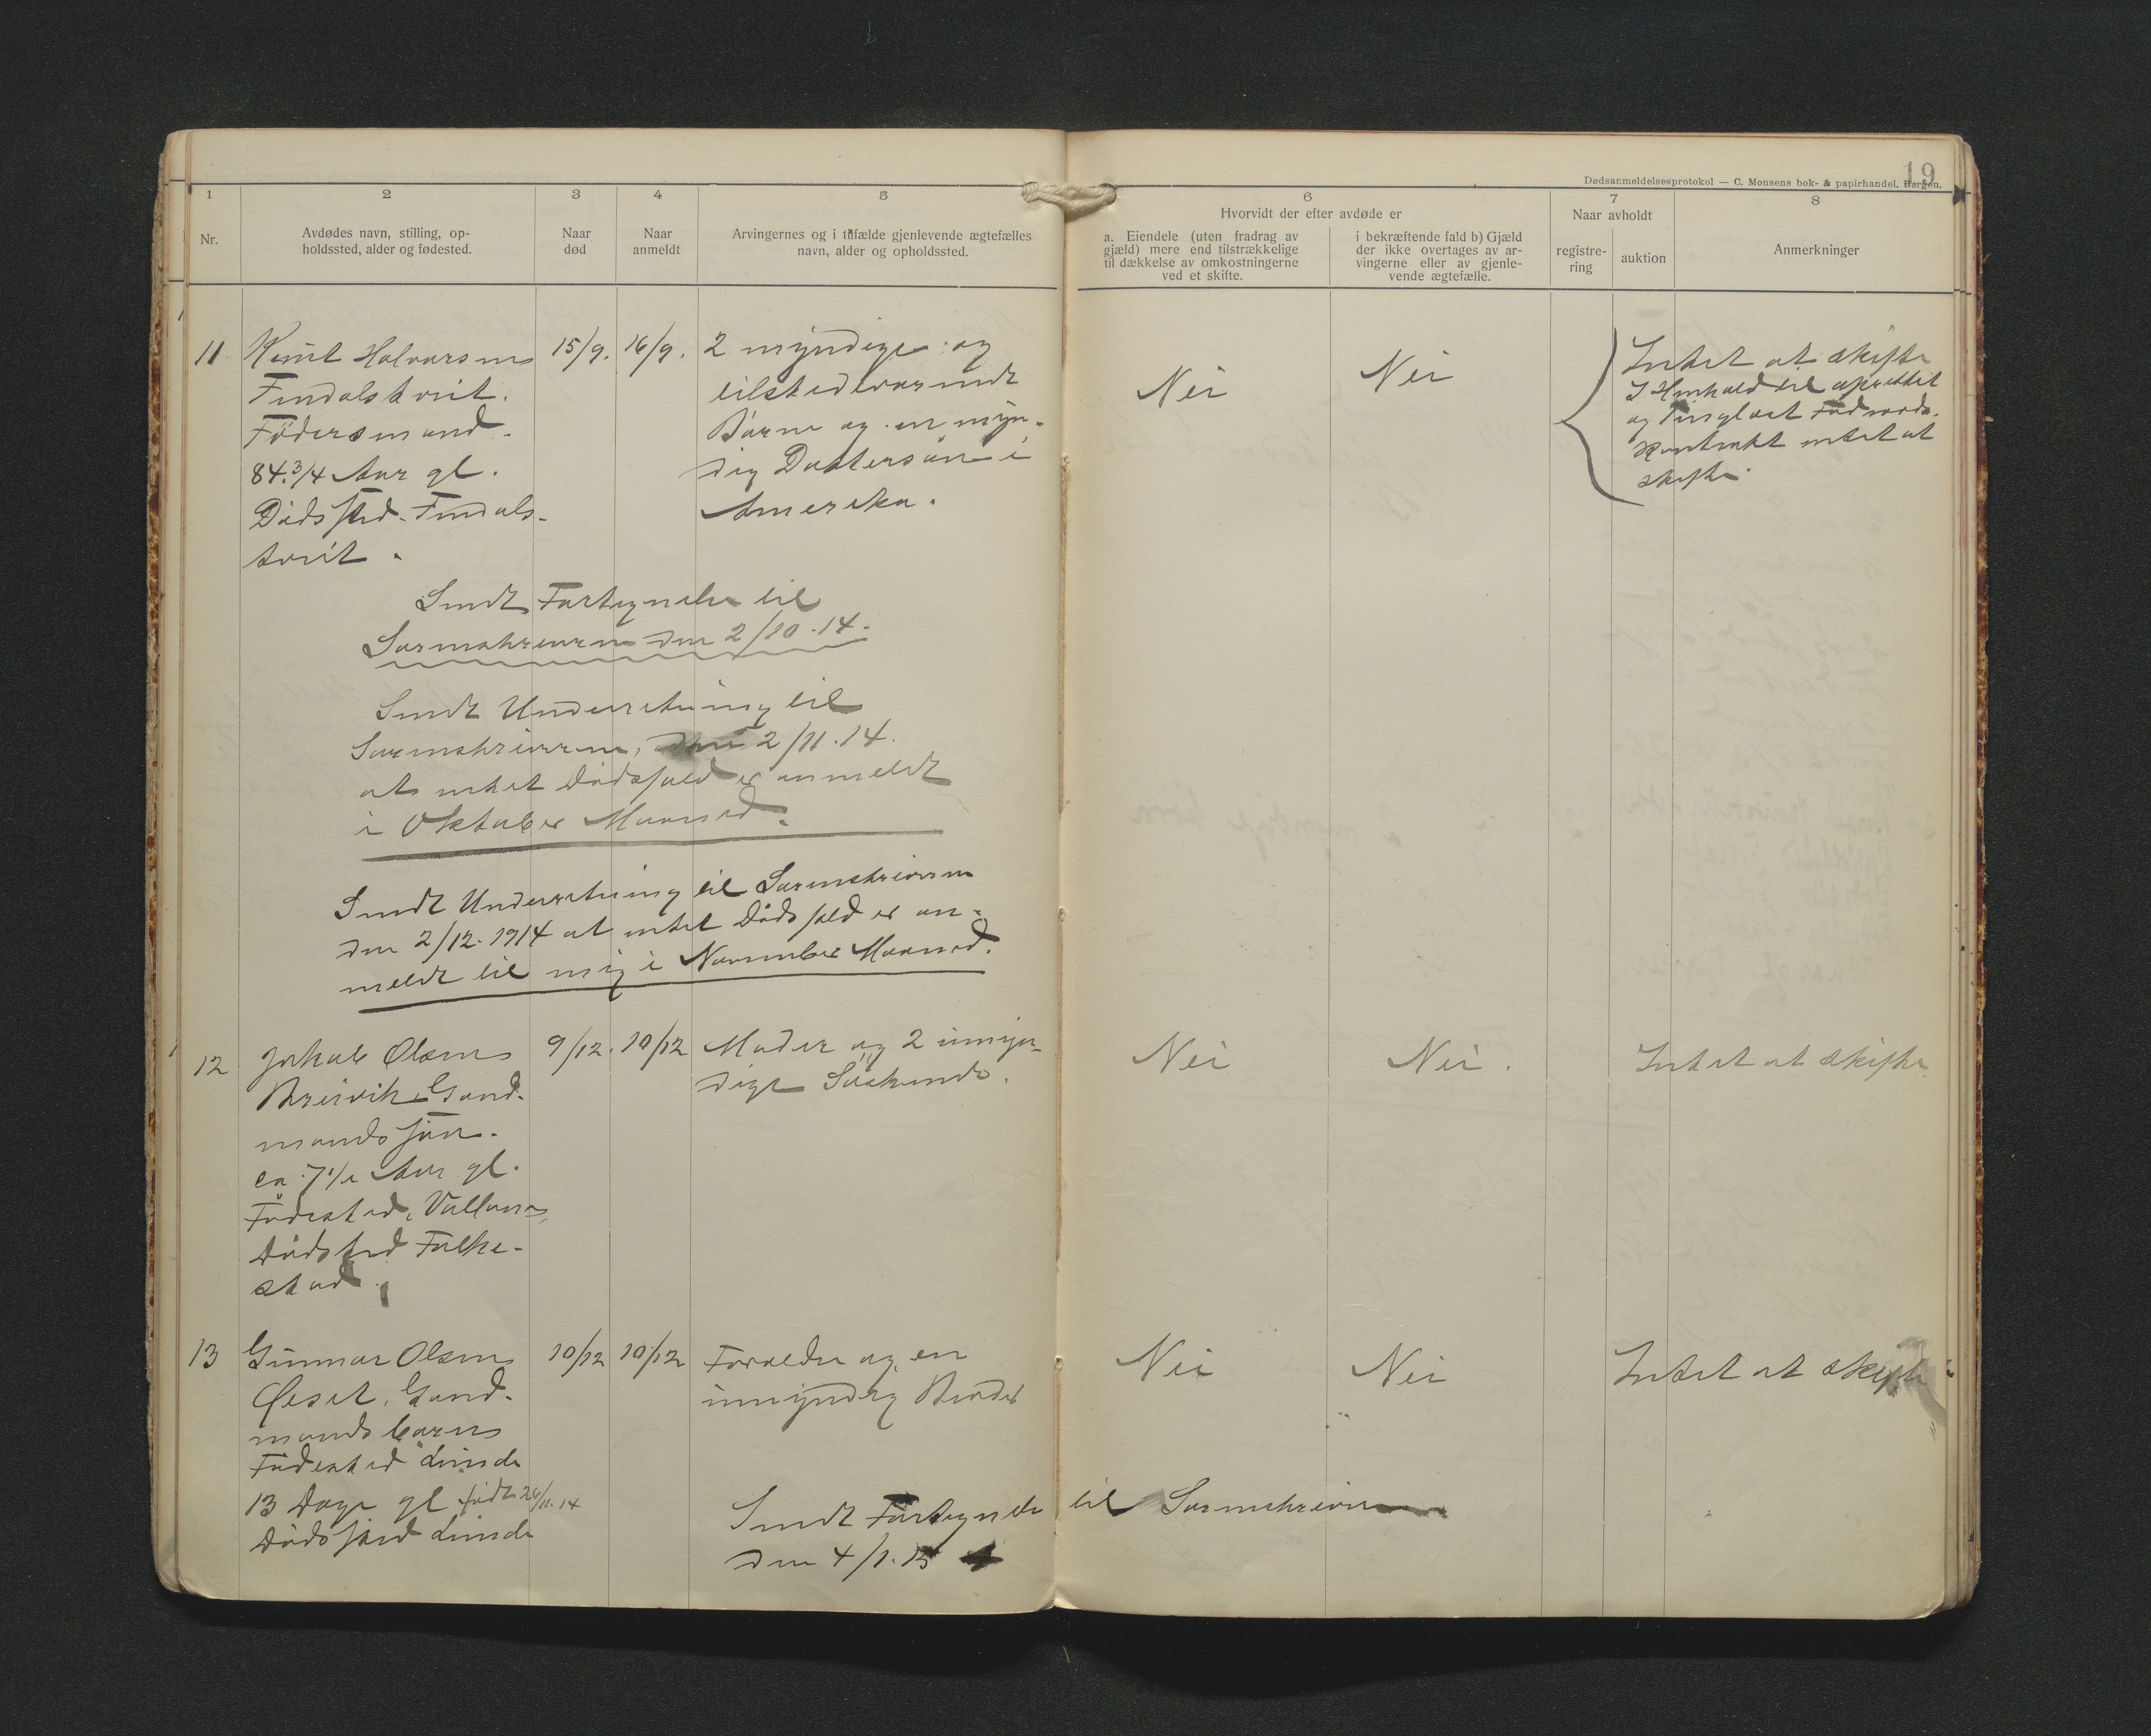 19
Dødsanmeldelsesprotokol — C. Monsens bok- & papirhandel, Bergen.
1
2
3
4
5
6
7
8
Nr.
Avdødes navn, stilling, op-
holdssted, alder og fødested.
Naar
død
Naar
anmeldt
Arvingernes og i tilfælde gjenlevende ægtefælles
navn, alder og opholdssted.
Hvorvidt der efter avdøde er
a. Eiendele (uten fradrag av
gjæld) mere end tilstrækkelige
til dækkelse av omkostningerne
ved et skifte.
i bekræftende fald b) Gjæld
der ikke overtages av ar-
vingerne eller av gjenle-
vende ægtefælle.
Naar avholdt
registre-
ring
auktion
Anmerkninger
11
Knut Halvorsen
Findalstveit.
Födersmand.
84 3/4 Aar gl.
Dödssted. Findals-
tveit.
15/9.
16/9.
2 myndige og
tilstedeværende
Börn og en myn-
dig Dattersön i
Amerika.
Nei
Nei
Intet at skifte
I Henhold til oprettet
og tinglæst Föderaads-
Kontrakt intet at
skifte.
Sendt Fortegnelse til
Sorenskriveren den 2/10.14.
Sendt Underretning til
Sorenskriveren, den 2/11.14.
at intet Dödsfald er anmeldt
i Oktober Maaned.
Sendt Underretning til Sorenskriveren
den 2/12.1914 at intet Dödsfald er an-
meldt til mig i November Maaned.
12
Jakob Olsen
Breivik Gaard-
mandssön.
ca. 7 1/2 Aar gl.
Födested,
Dödssted Falke-
stad.
9/12.
10/12
Moder og 2 umyn-
dige Söskende.
Nei
Nei.
Intet at skifte
13
Gunnar Olsen
Öiset. Gaard-
mandsbarn
Födested Linde
13 Dage gl födt 26/11.14
Dödssted Linde
10/12
10/12
Forældre og en
umyndig Broder
Nei
Nei
Intet at skifte
Sendt Fortegnelse til Sorenskriveren
den 4/1.15